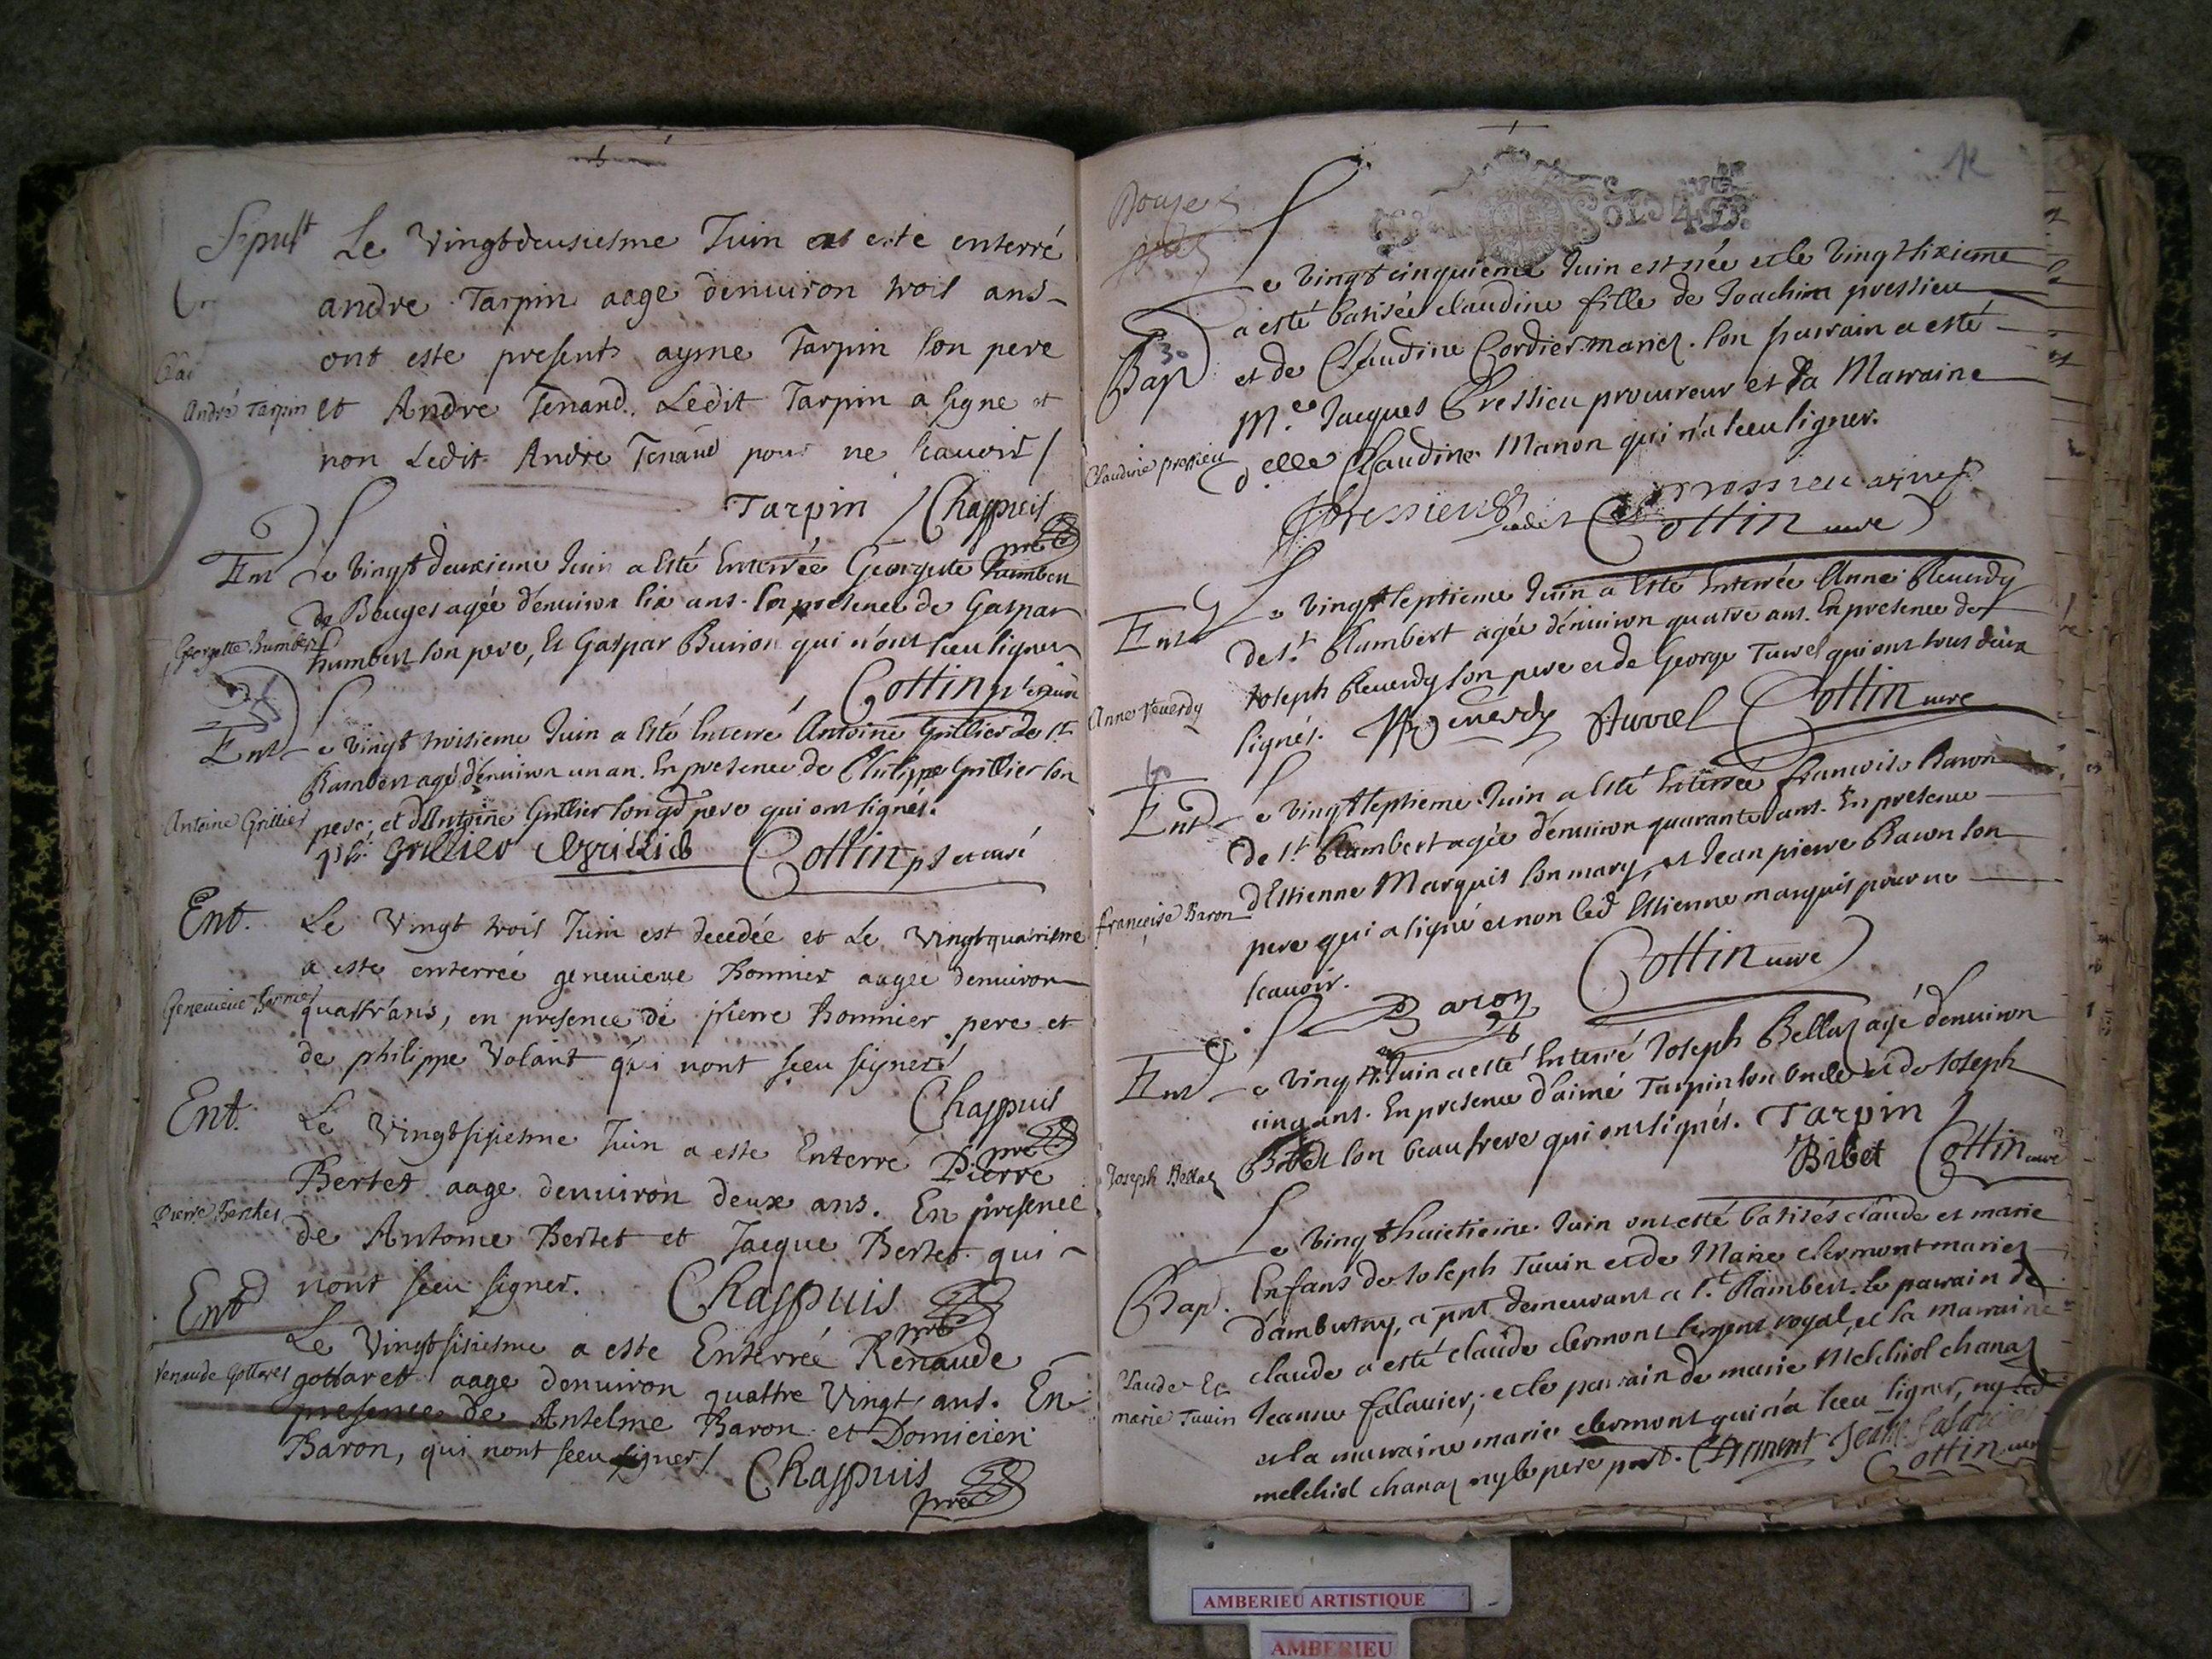 Sepult Le Vingtdeusiesme Juin est esté enterré
andre Tarpin aage denuiron trois ans
ont este presents ayme Tarpin son pere
André Tarpin
et Andre Tenand. Ledit Tarpin a signe et
non Ledit Andre Tenand pour ne scauoir /
Tarpin / Chappuis
pre
Ent Le vingt deuxieme Juin a Esté Enterrée Georgette humbert
de Beuges agée d'enuiron six ans. En presence de Gaspar
Georgette humbert
humbert son pere, Et Gaspar Burion qui n'ont sceu signer
Cottin pt curé
Ent Le vingt troisieme Juin a Esté Enterré Antoine Grillier de St
Rambert agé d'enuiron un an. En presence de Philippe Grillier son
Antoine Grillier
pere, et d'Antoine Grillier son gd pere qui ont signés.
phi Grillier AGrillier Cottin pt curé
Ent. Le Vingt trois Juin est decedée et Le Vingtquatriesme
a este enterrée geneuieue Bonnier aagée denuiron
Geneuieue Bonnier
quattr'ans, en presence de pierre Bonnier pere et
de philippe Volant qui nont sceu signer /
Chappuis
pre
Ent. Le Vingtsisiesme Juin a este Enterré Pierre
Bertet aage denuiron deux ans. En presence
Pierre Berthet
de Antoine Bertet et Jacque Bertet qui
nont sceu signer. Chappuis
pre
Ent Le Vingtsisiesme a este Enterrée Renaude
Renaude Gottaret
gottaret aage denuiron quattre Vingt ans. En
presence de Antelme Baron et Domicien
Baron, qui nont sceu signer / Chappuis
pre
SOLS 4 D.
Le vingt cinquieme Juin est née et le vingt sixieme
a esté batisée claudine fille de Joachim pressieu
Bap 30
et de Claudine Cordier mariez. Son parrain a esté
Me Jacques Pressieu procureur et sa Marraine
Claudine Pressieu
d.elle Claudine Manon qui n'a sceu signer.
JPressieu
Cottin curé
Ent Le vingt septieme Juin a Esté Enterrée Anne Reuerdy
de St. Rambert agée d'enuiron quatre ans. En presence de
Joseph Reuerdy son pere et de George Turrel qui ont tous deux
Anne Reuerdy
signés. Reuerdy Turrel Cottin curé
Ent Le vingt septieme Juin a Esté Enterrée francoise Baron
de St. Rambert agée d'enuiron quarante ans. En presence
d'Estienne Marquis son mary, et Jean pierre Baron son
françoise Baron
pere qui a signé et non led Estienne marquis pour ne
scauoir. Baron Cottin curé
Ent Le vingt Juin a esté Enterré Joseph Bellaz agé d'enuiron
cinq ans. En presence d'aimé Tarpin son Oncle et de Joseph
Joseph Bellaz
Bibet son beau frere qui ont signés. Tarpin
Bibet Cottin curé
Le vingt huictieme Juin ont esté batisés claude et marie
Bap. Enfans de Joseph Juuin et de Marie clermont mariez
d'ambutny, a pnt demeurant a St. Rambert. le parrain de
claude a esté claude clermont sergent royal, et la marraine
Claude Et
marie Juuin
Jeanne falauier; et le parrain de marie Melchiol chanaz
et la marraine marie clermont qui n'a sceu signer, ny led
melchiol chanaz ny le pere pnt. Clermont Jeane falauier
Cottin curé
AMBERIEU ARTISTIQUE
AMBERIEU